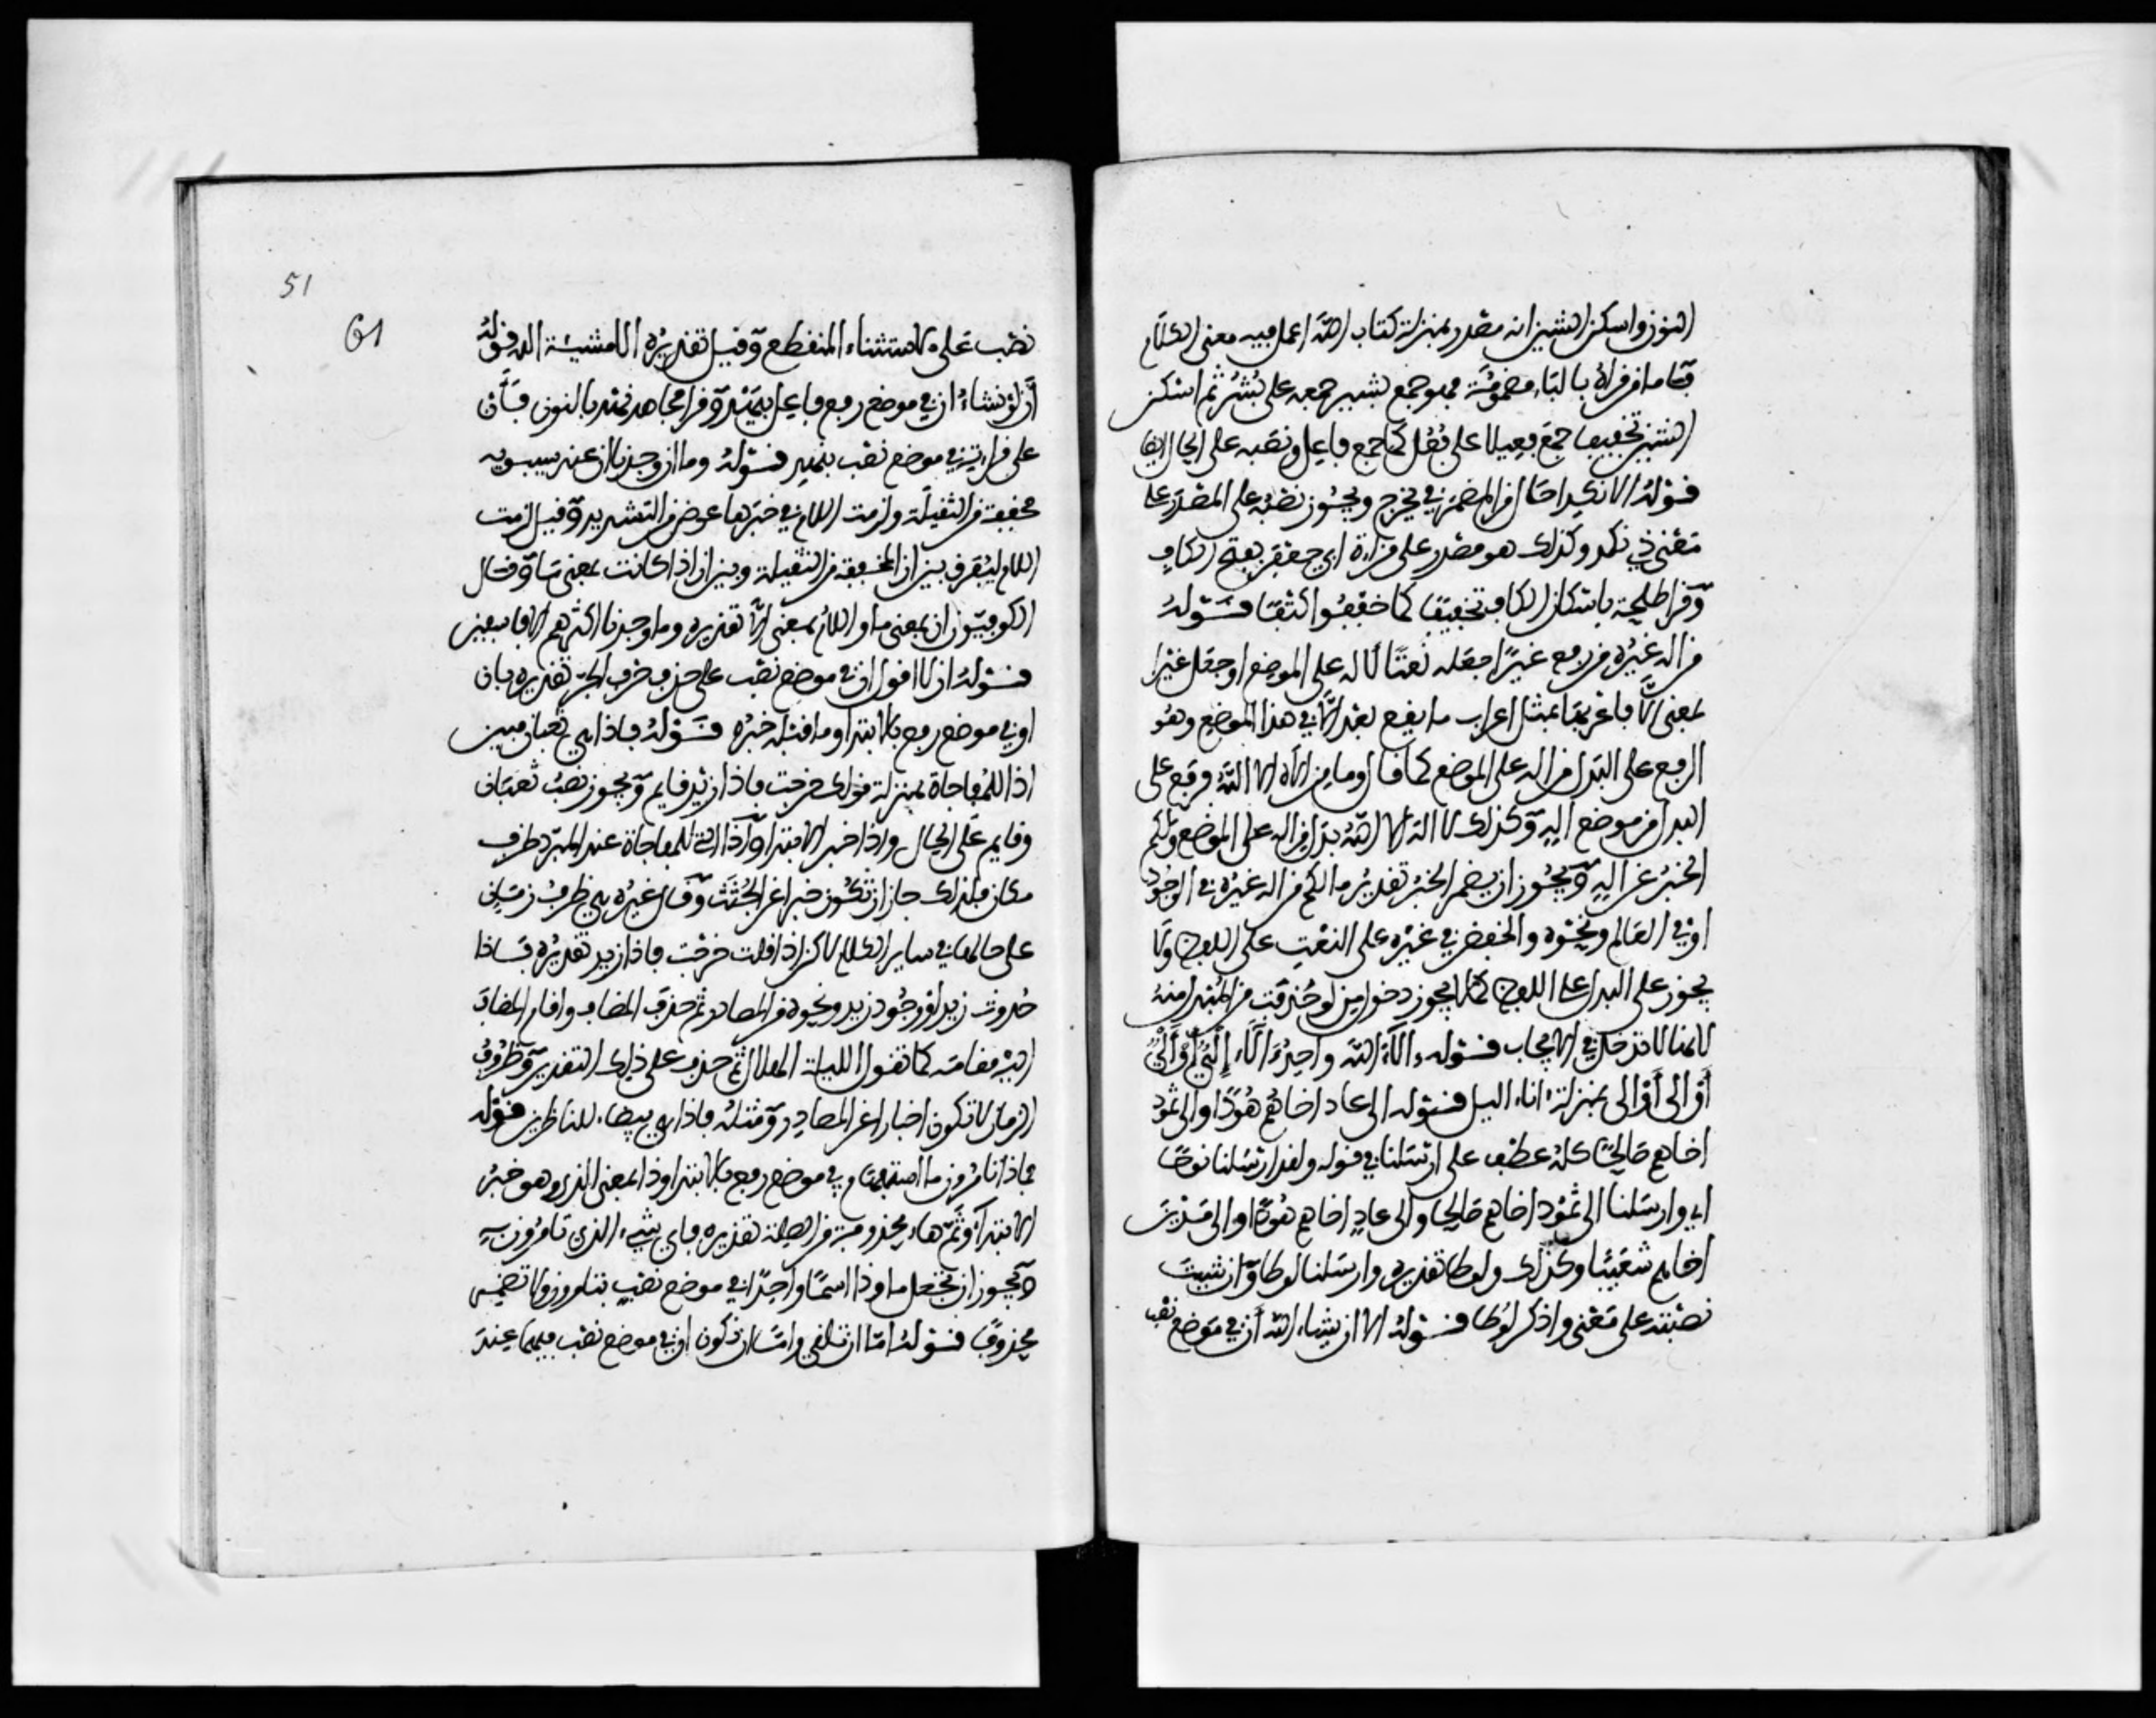 النون واسكن الشين انه مصدر بمنزلة كتاب الله اعمل فيه معنى الكلام
فاما من قراه بالباء مضمومة فهو جمع بشير جمعه على بُشُر ثم اسكن
الشين تخفيفا جمع فعيلا على فُعُل كما جمع فاعل ونصبه على الحال ايضا
قوله الا نكدا حال من المضمر في يخرج ويجوز نصبه على المصدر على
معنى ذي نكد وكذلك هو مصدر على قراءة ابي جعفر بفتح الكاف
وقرا طلحة باسكان الكاف تخفيفا كما خففوا كتفا قوله
من اله غيره من رفع غيرا جعله نعتا لاله على الموضع او جعل غيرا
بمعنى الا فاعربها بمثل اعراب ما يقع بعد الا في هذا الموضع وهو
الرفع على البدل من اله على الموضع كما قال وما من الاه الا الله فرفع على
البدل من موضع اله وكذلك لا اله الا الله بدل من اله على الموضع ولكم
الخبر عن اله ويجوز ان يضمر الخبر تقديره ما لكم من اله غيره في الوجود
او في العالم ونحوه والخفض في غيره على النعت على اللفظ ولا
يجوز على البدل على اللفظ كما لا يجوز دخول من لو حذفت من المبتدا منه
لانها لا تدخل في الايجاب قوله ءالاء الله واحد ءالاء إلْيٌ أو ألْيٌ
أو الى أو الى بمنزلة اناء اليل قوله الى عاد اخاهم هودا والى ثمود
اخاهم صالحا كله عطف على ارسلنا في قوله ولقد ارسلنا نوحا
اي وارسلنا الى ثمود اخاهم صالحا والى عاد اخاهم هودا والى مدين
اخاهم شعيبا وكذلك ولوطا تقديره وارسلنا لوطا وان شيت
نصبته على معنى واذكر لوطا قوله الا ان يشاء الله أن في موضع نصب
51
61
نصب على الاستثناء المنقطع وقيل تقديره الا مشيئة الله قوله
أن لو نشاء ان في موضع رفع فاعل يهد وقرا مجاهد نهد بالنون فأن
على قراءته في موضع نصب بنهد قوله وما ان وجدنا ان عند سيبويه
مخففة من الثقيلة ولزمت اللام في خبرها عوض من التشديد وقيل لزمت
اللام ليفرق بين ان المخففة من الثقيلة وبين ان اذا كانت بمعنى ما وقال
الكوفيون ان بمعنى ما واللام بمعنى الا تقديره وما وجدنا اكثرهم الا فاسقين
قوله ان لا اقول ان في موضع نصب على حذف حرف الجر تقديره بان
او في موضع رفع بالابتدا وما قبله خبره قوله فاذا هي ثعبان مبين
اذا للمفاجاة بمنزلة قولك خرجت فاذا زيد قايم ويجوز نصب ثعبان
وقايم على الحال واذا خبر الابتدا وآذا التي للمفاجاة عند المبرد ظرف
مكان فلذلك جاز ان تكون خبرا عن الجثث وقال غيره هي ظرف زمان
على حالها في ساير الكلام لاكن اذا قلت خرجت فاذا زيد تقديره فاذا
حدوث زيد او وجود زيد ونحوه من المصادر ثم حذف المضاف واقام المضاف
اليه مقامه كما تقول الليلة الهلال ثم حذف على ذلك التقدير وظروف
الزمان لا تكون اخبارا عن المصادر ومثله فاذا هي بيضاء للناظرين قوله
فماذا تامرون ما استفهام في موضع رفع بالابتدا وذا بمعنى الذي وهو خبر
الابتدا وثم هاء محذوفة من الصلة تقديره فاي شيء الذي تامرون به
ويجوز ان تجعل ما وذا اسما واحدا في موضع نصب بتامرون ولا تضمر
محذوفا قوله اما ان تلقي واما ان نكون ان في موضع نصب فيهما عند